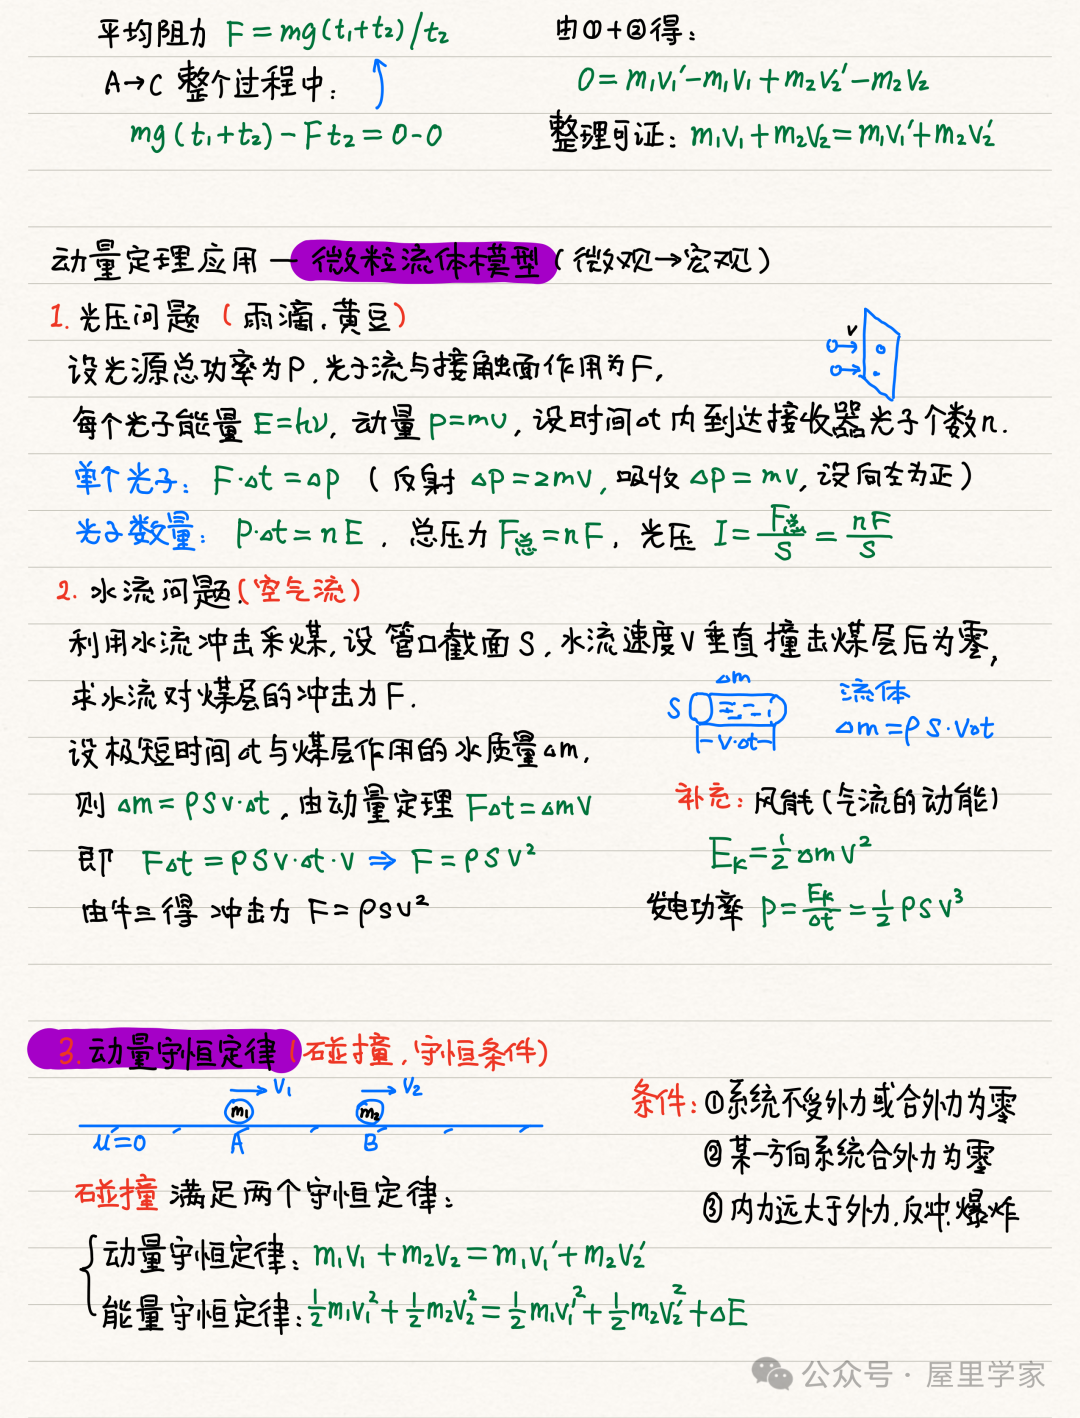 平均阻力 F=mg(t₁+t₂)/t₂
A→C 整个过程中:
mg(t₁+t₂)-Ft₂=0-0
由①+②得:
0=m₁v₁′-m₁v₁+m₂v₂′-m₂v₂
整理可证: m₁v₁+m₂v₂=m₁v₁′+m₂v₂′
动量定理应用一微粒流体模型(微观→宏观)
1. 光压问题 (雨滴.黄豆)
v
设光源总功率为P.光子流与接触面作用为F,
每个光子能量 E=hν, 动量 p=mv, 设时间Δt内到达接收器光子个数n.
单个光子: F·Δt=Δp (反射 Δp=2mv, 吸收 Δp=mv, 设向左为正)
光子数量: P·Δt=nE. 总压力 F总=nF, 光压 I=F总/S=nF/S
2. 水流问题.(空气流)
利用水流冲击采煤, 设管口截面S, 水流速度V垂直撞击煤层后为零,
求水流对煤层的冲击力F.
设极短时间Δt与煤层作用的水质量Δm,
则 Δm=ρSv·Δt, 由动量定理 FΔt=ΔmV
即 FΔt=ρSv·Δt·v ⇒ F=ρSv²
由牛三得 冲击力 F=ρsv²
Δm
S
V·Δt
流体
Δm=ρS·VΔt
补充: 风能(气流的动能)
Eₖ=½ΔmV²
发电功率 P=Eₖ/Δt=½ρSV³
3. 动量守恒定律(碰撞.守恒条件)
V₁ V₂
m₁ m₂
u=0 A B
碰撞 满足两个守恒定律:
动量守恒定律: m₁v₁+m₂v₂=m₁v₁′+m₂v₂′
能量守恒定律: ½m₁v₁²+½m₂v₂²=½m₁v₁′²+½m₂v₂′²+ΔE
条件: ①系统不受外力或合外力为零
②某一方向系统合外力为零
③内力远大于外力.反冲.爆炸
公众号 · 屋里学家